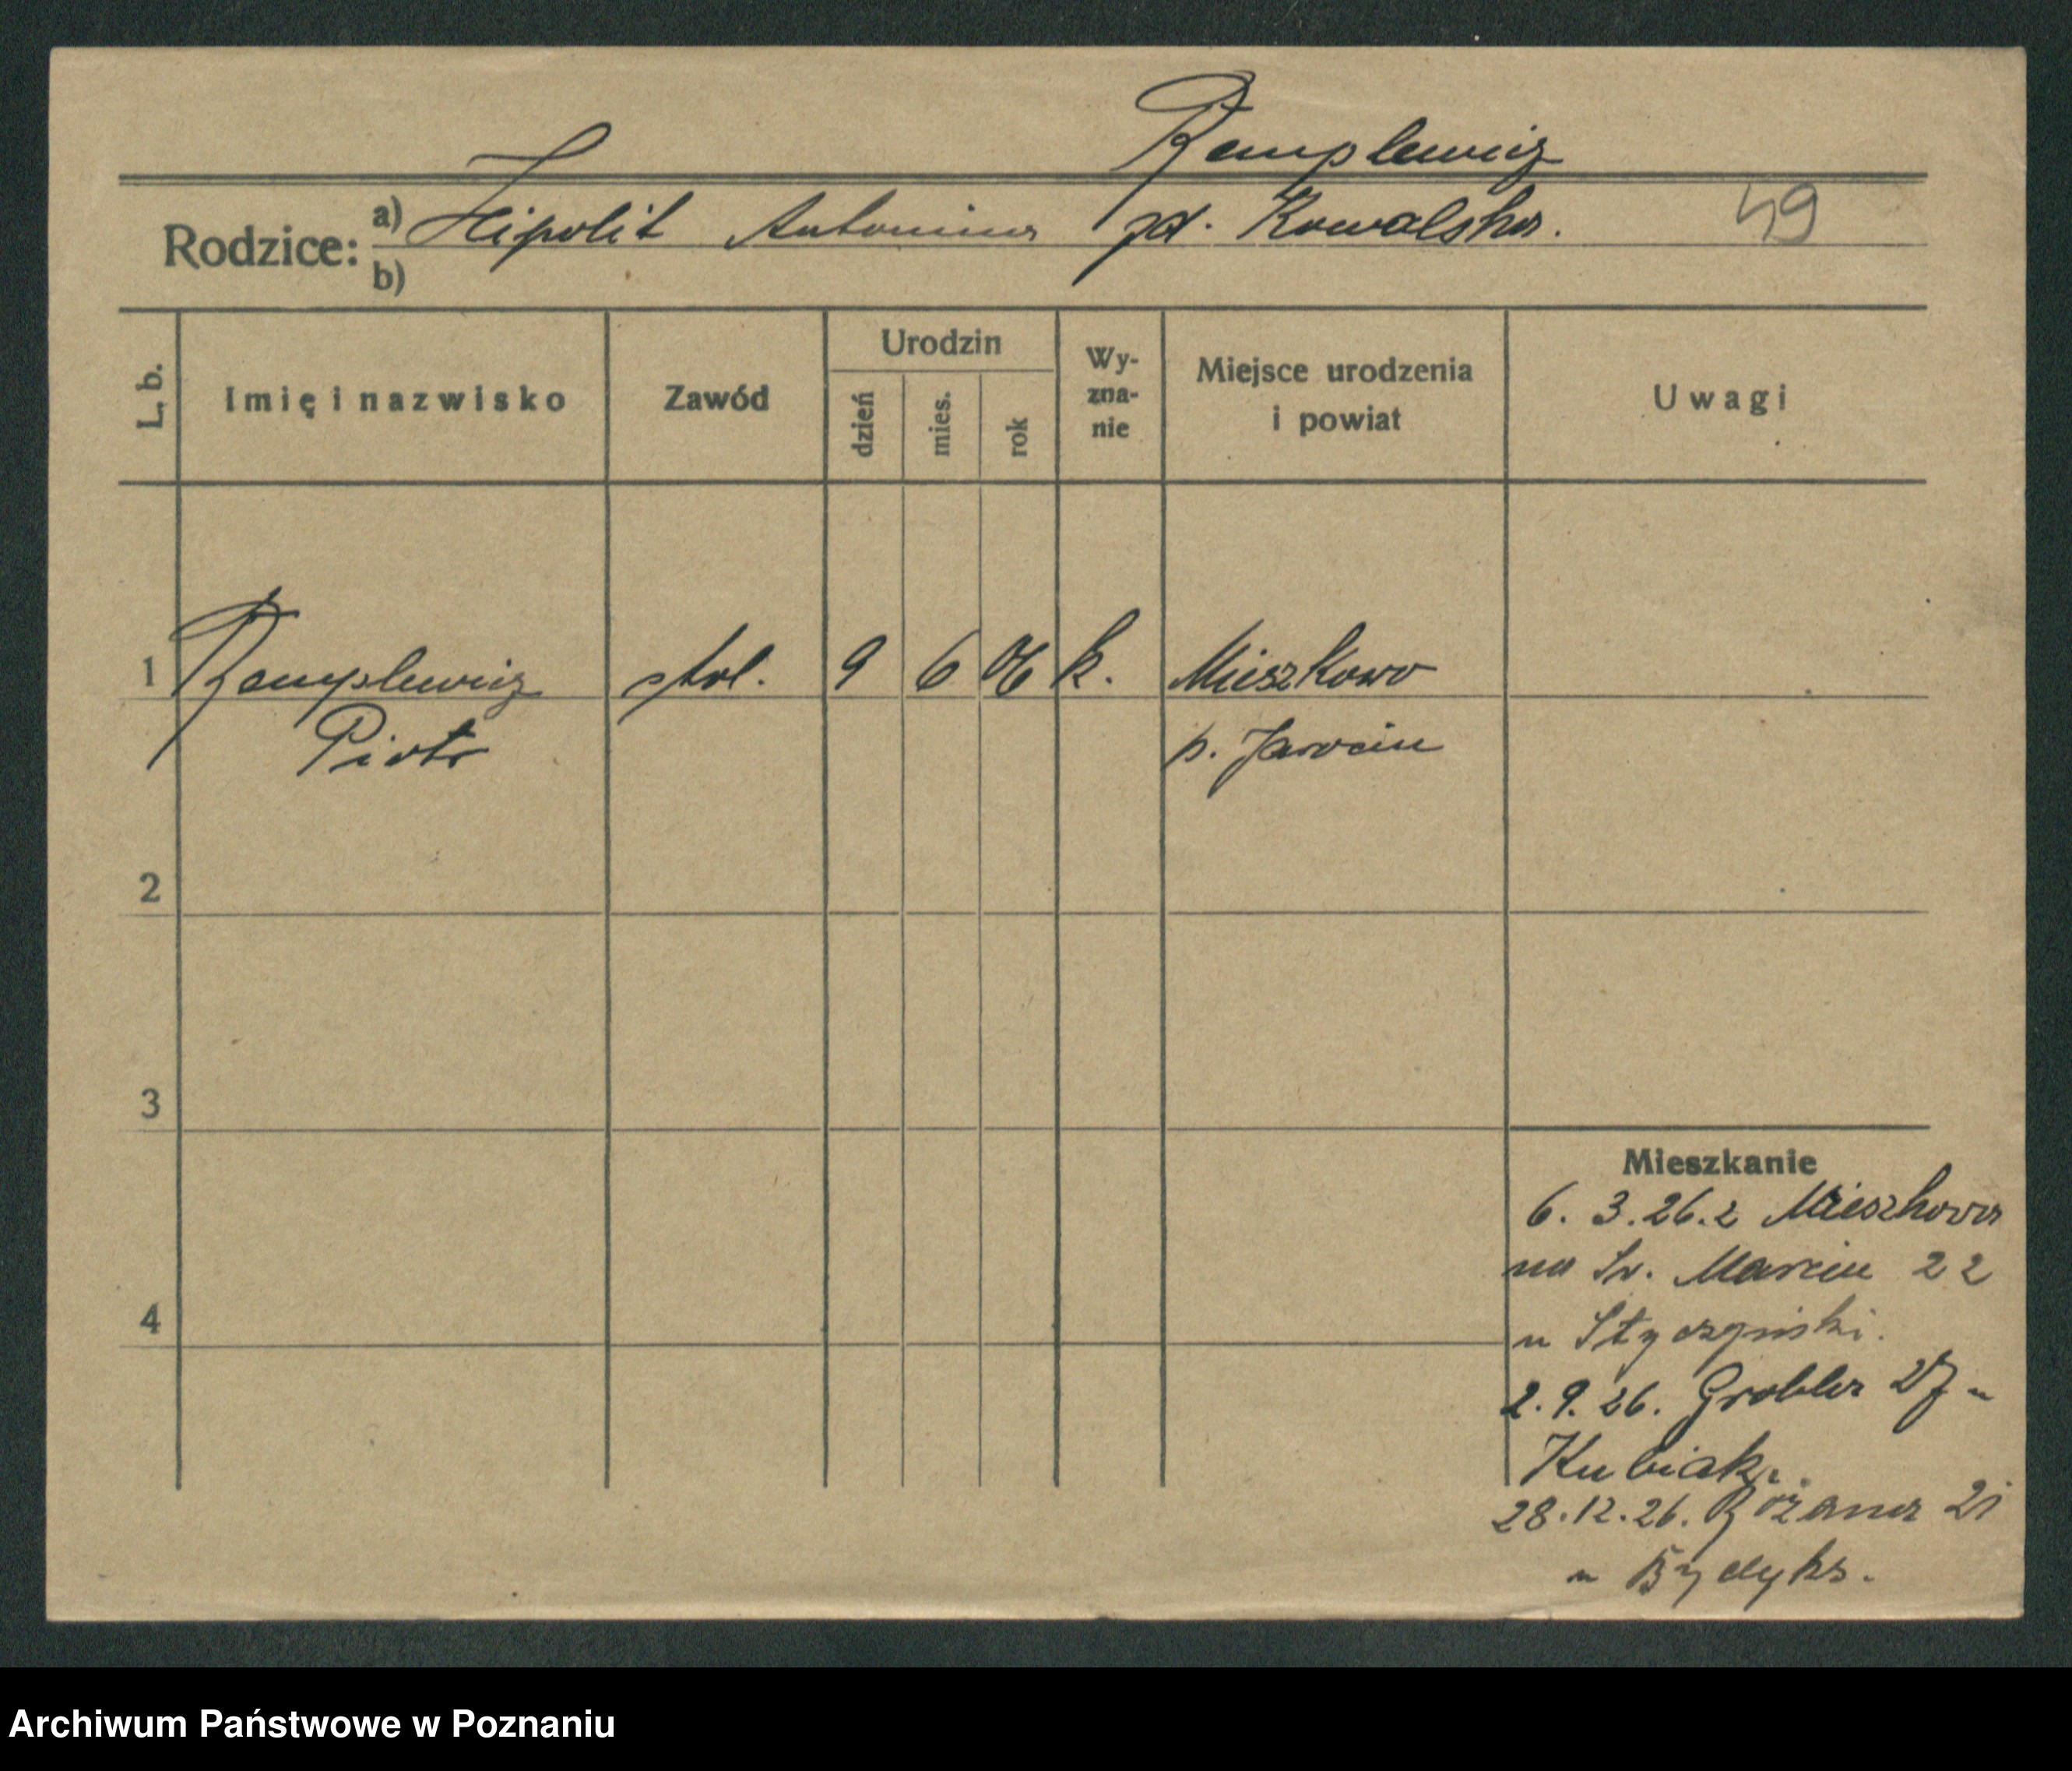 Remplewicz
Rodzice: a) Hipolit Antonina zd. Kowalska.
49
b)
L. b.
Imię i nazwisko
Zawód
Urodzin
dzień
mies.
rok
Wy-
zna-
nie
Miejsce urodzenia
i powiat
Uwagi
1 Remplewicz stol. 9 6 06 k. Mieszkowo
Piotr p. Jarocin
2
3
4
Mieszkanie
6. 3.26. z Mieszkowa
na Św. Marcin 22
u Styczyński.
2. 9. 26. Grobla 27 u
Kubiak.
28.12.26. Różana 21
u